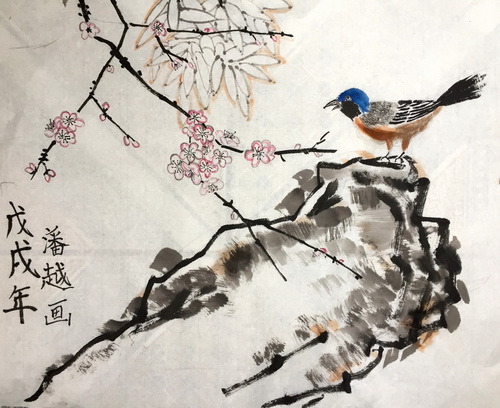 戊戌年
潘越画